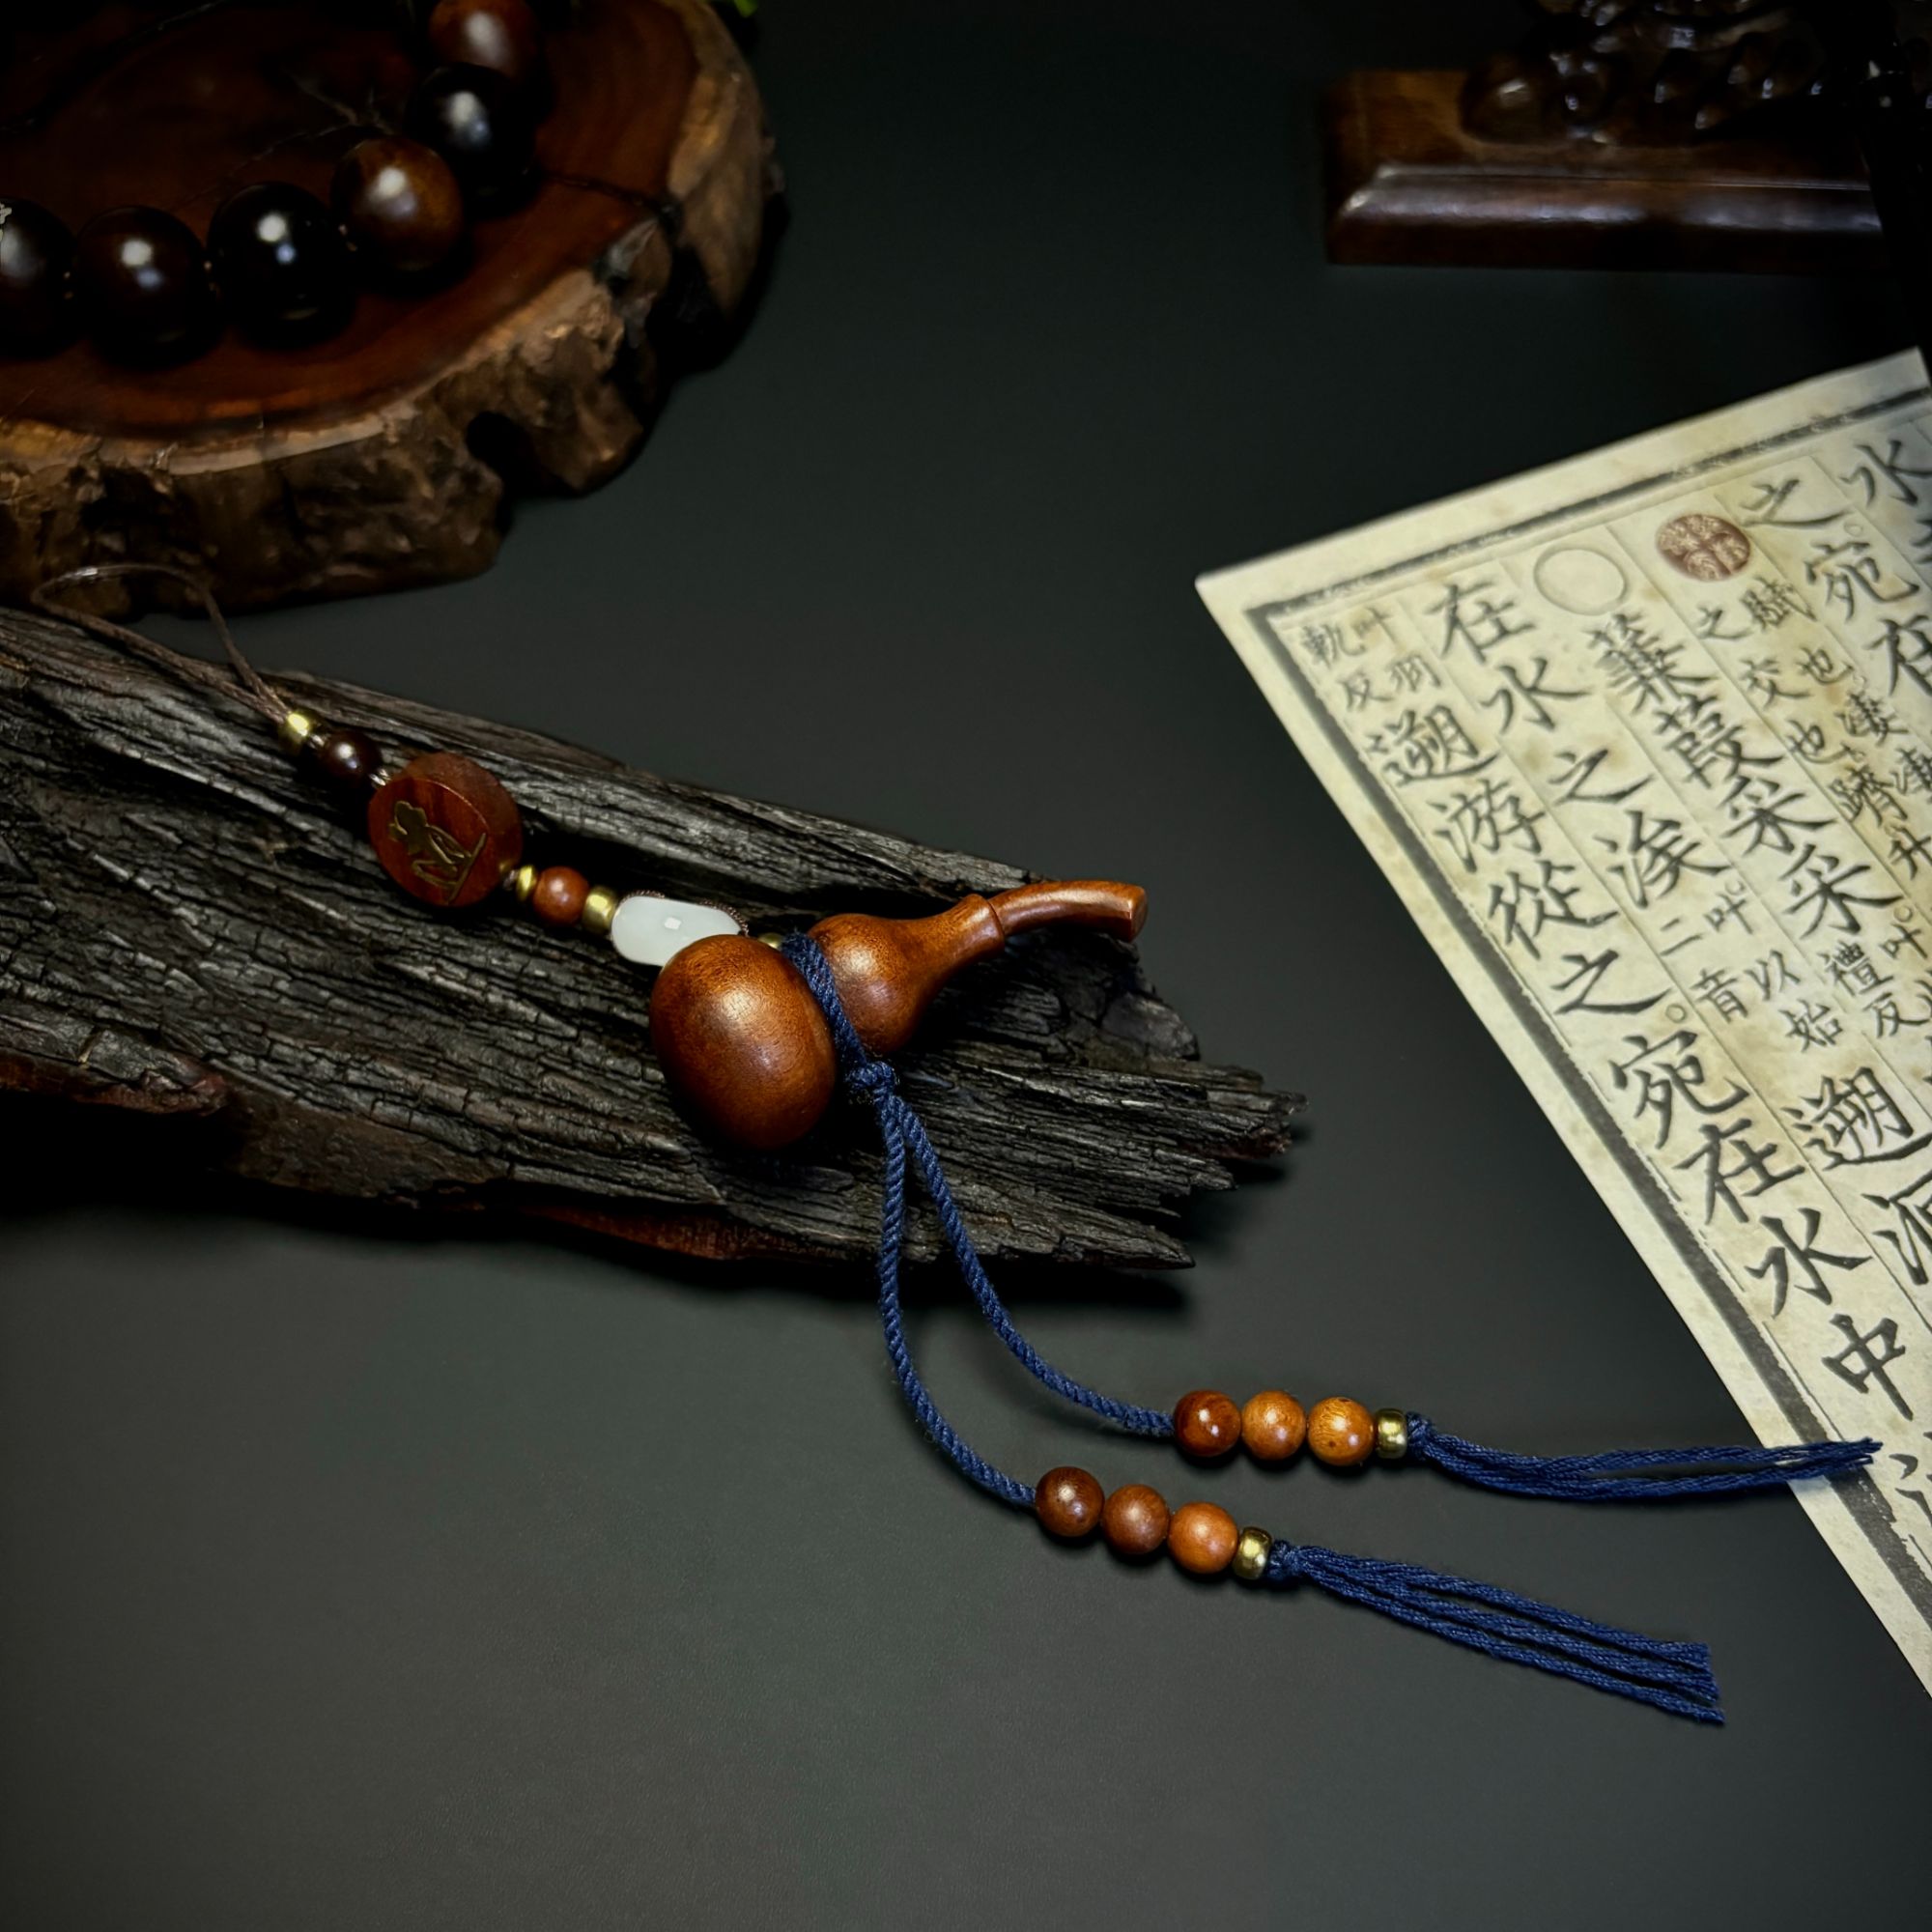 水
之宛在
賦也淒淒
之交也躋升
○蒹葭采采叶
禮反
在水之涘叶以始
二音遡洄
叶羽
軌反遡游從之。宛在水中